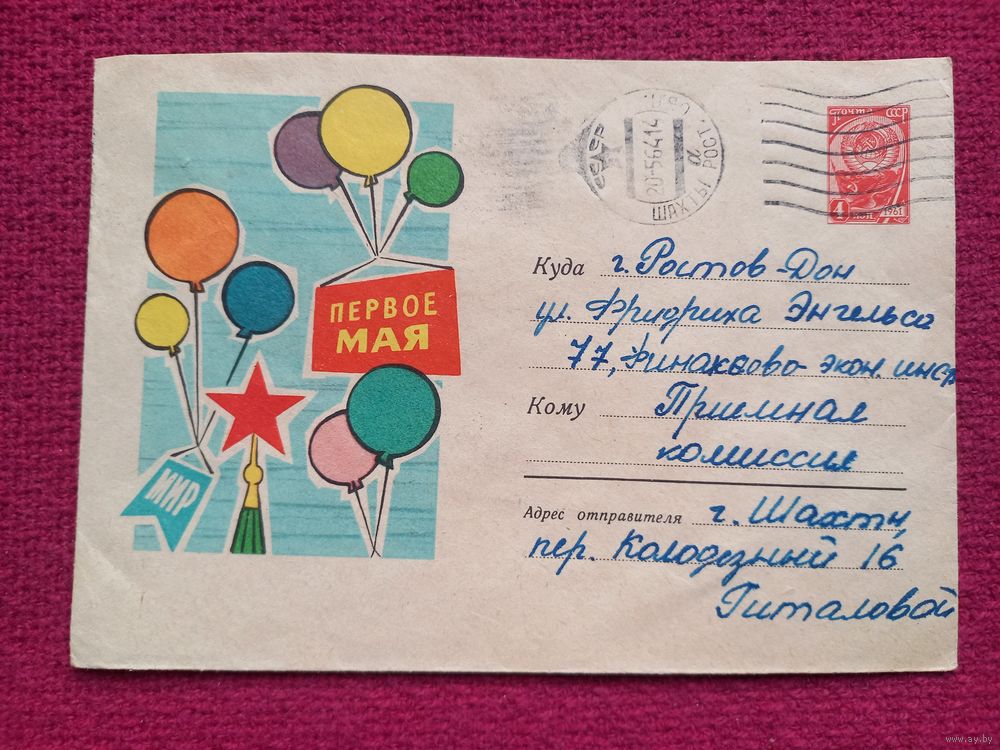 ПЕРВОЕ
МАЯ
МИР
ШАХТЫ РОСТ.
20-56414
а
ПОЧТА СССР
4 КОП 1961
Куда г. Ростов-Дон
ул. Фридриха Энгельса
77, Финансово-экон. инст
Кому Приемная
комиссия
Адрес отправителя г. Шахты,
пер. Колодезный 16
Гиталовой
www.ay.by